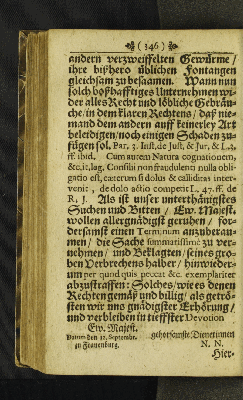 (146)
andern verzweiffelten Gewürme/
ihre bißhero üblichen Fontangen
gleichsam zu besaamen. Wann nun
solch boßhafftiges Unternehmen wi-
der alles Recht und löbliche Gebräu-
che/ in dem klaren Rechtens/ daß nie-
mand dem andern auff keinerley Art
beleidigen/ noch einigen Schaden zu-
fügen sol. Par. 3. Inst. de Just. & Jur. & L. 3.
ff. ibid. Cum autem Natura cognationem,
&c. it. lug. Consilii non fraudulenti nulla obli-
gatio est, cæterum si dolus & calliditas inter-
venit, de dolo actio competit L. 47. ff. de
R. J. Als ist unser unterthänigstes
Suchen und Bitten/ Ew. Majest.
wollen allergnädigst geruhen/ för-
dersamst einen Terminum anzuberau-
men/ die Sache summatissimè zu ver-
nehmen/ und Beklagten/ seines gro-
ben Verbrechens halber/ hinwieder-
um per quod quis peccat &c. exemplariter
abzustraffen: Solches/ wie es denen
Rechten gemäß und billig/ als getrö-
sten wir uns gnädigster Erhörung/
und verbleiben in tieffster Devotion
Ew. Majest.
Datum den 12. Septembr. gehorsamste Dienerinnen
zu Frauenburg. N. N.
Hier-